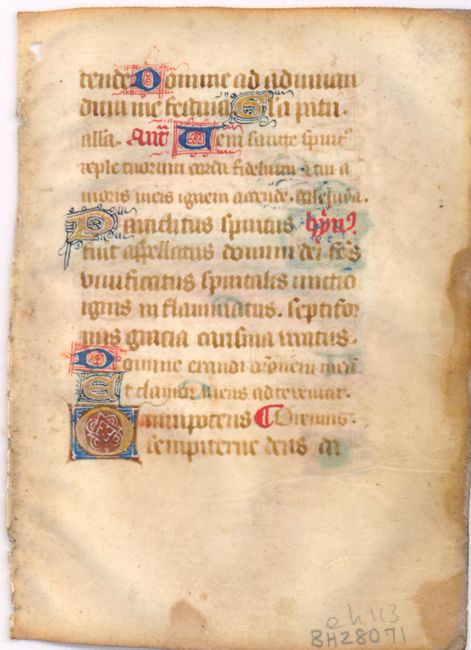 tende Domine ad adiuuan
dum me festina Gla patri.
alla. Anã Veni sancte spirit͛
reple tuorum corda fidelium & tui a
moris in eis ignem accende. alleluya.
Paraclitus spiritus hỹn9
tuus appellatus donum dei
viuificatus spiritalis unctio
ignis inflammatus. septifor
mis gracia carisma uirtus.
Domine exaudi or̃onem meã
Et clamor meus ad te veniat.
Omnipotens
sempiterne deus da
eh 113
BH28071